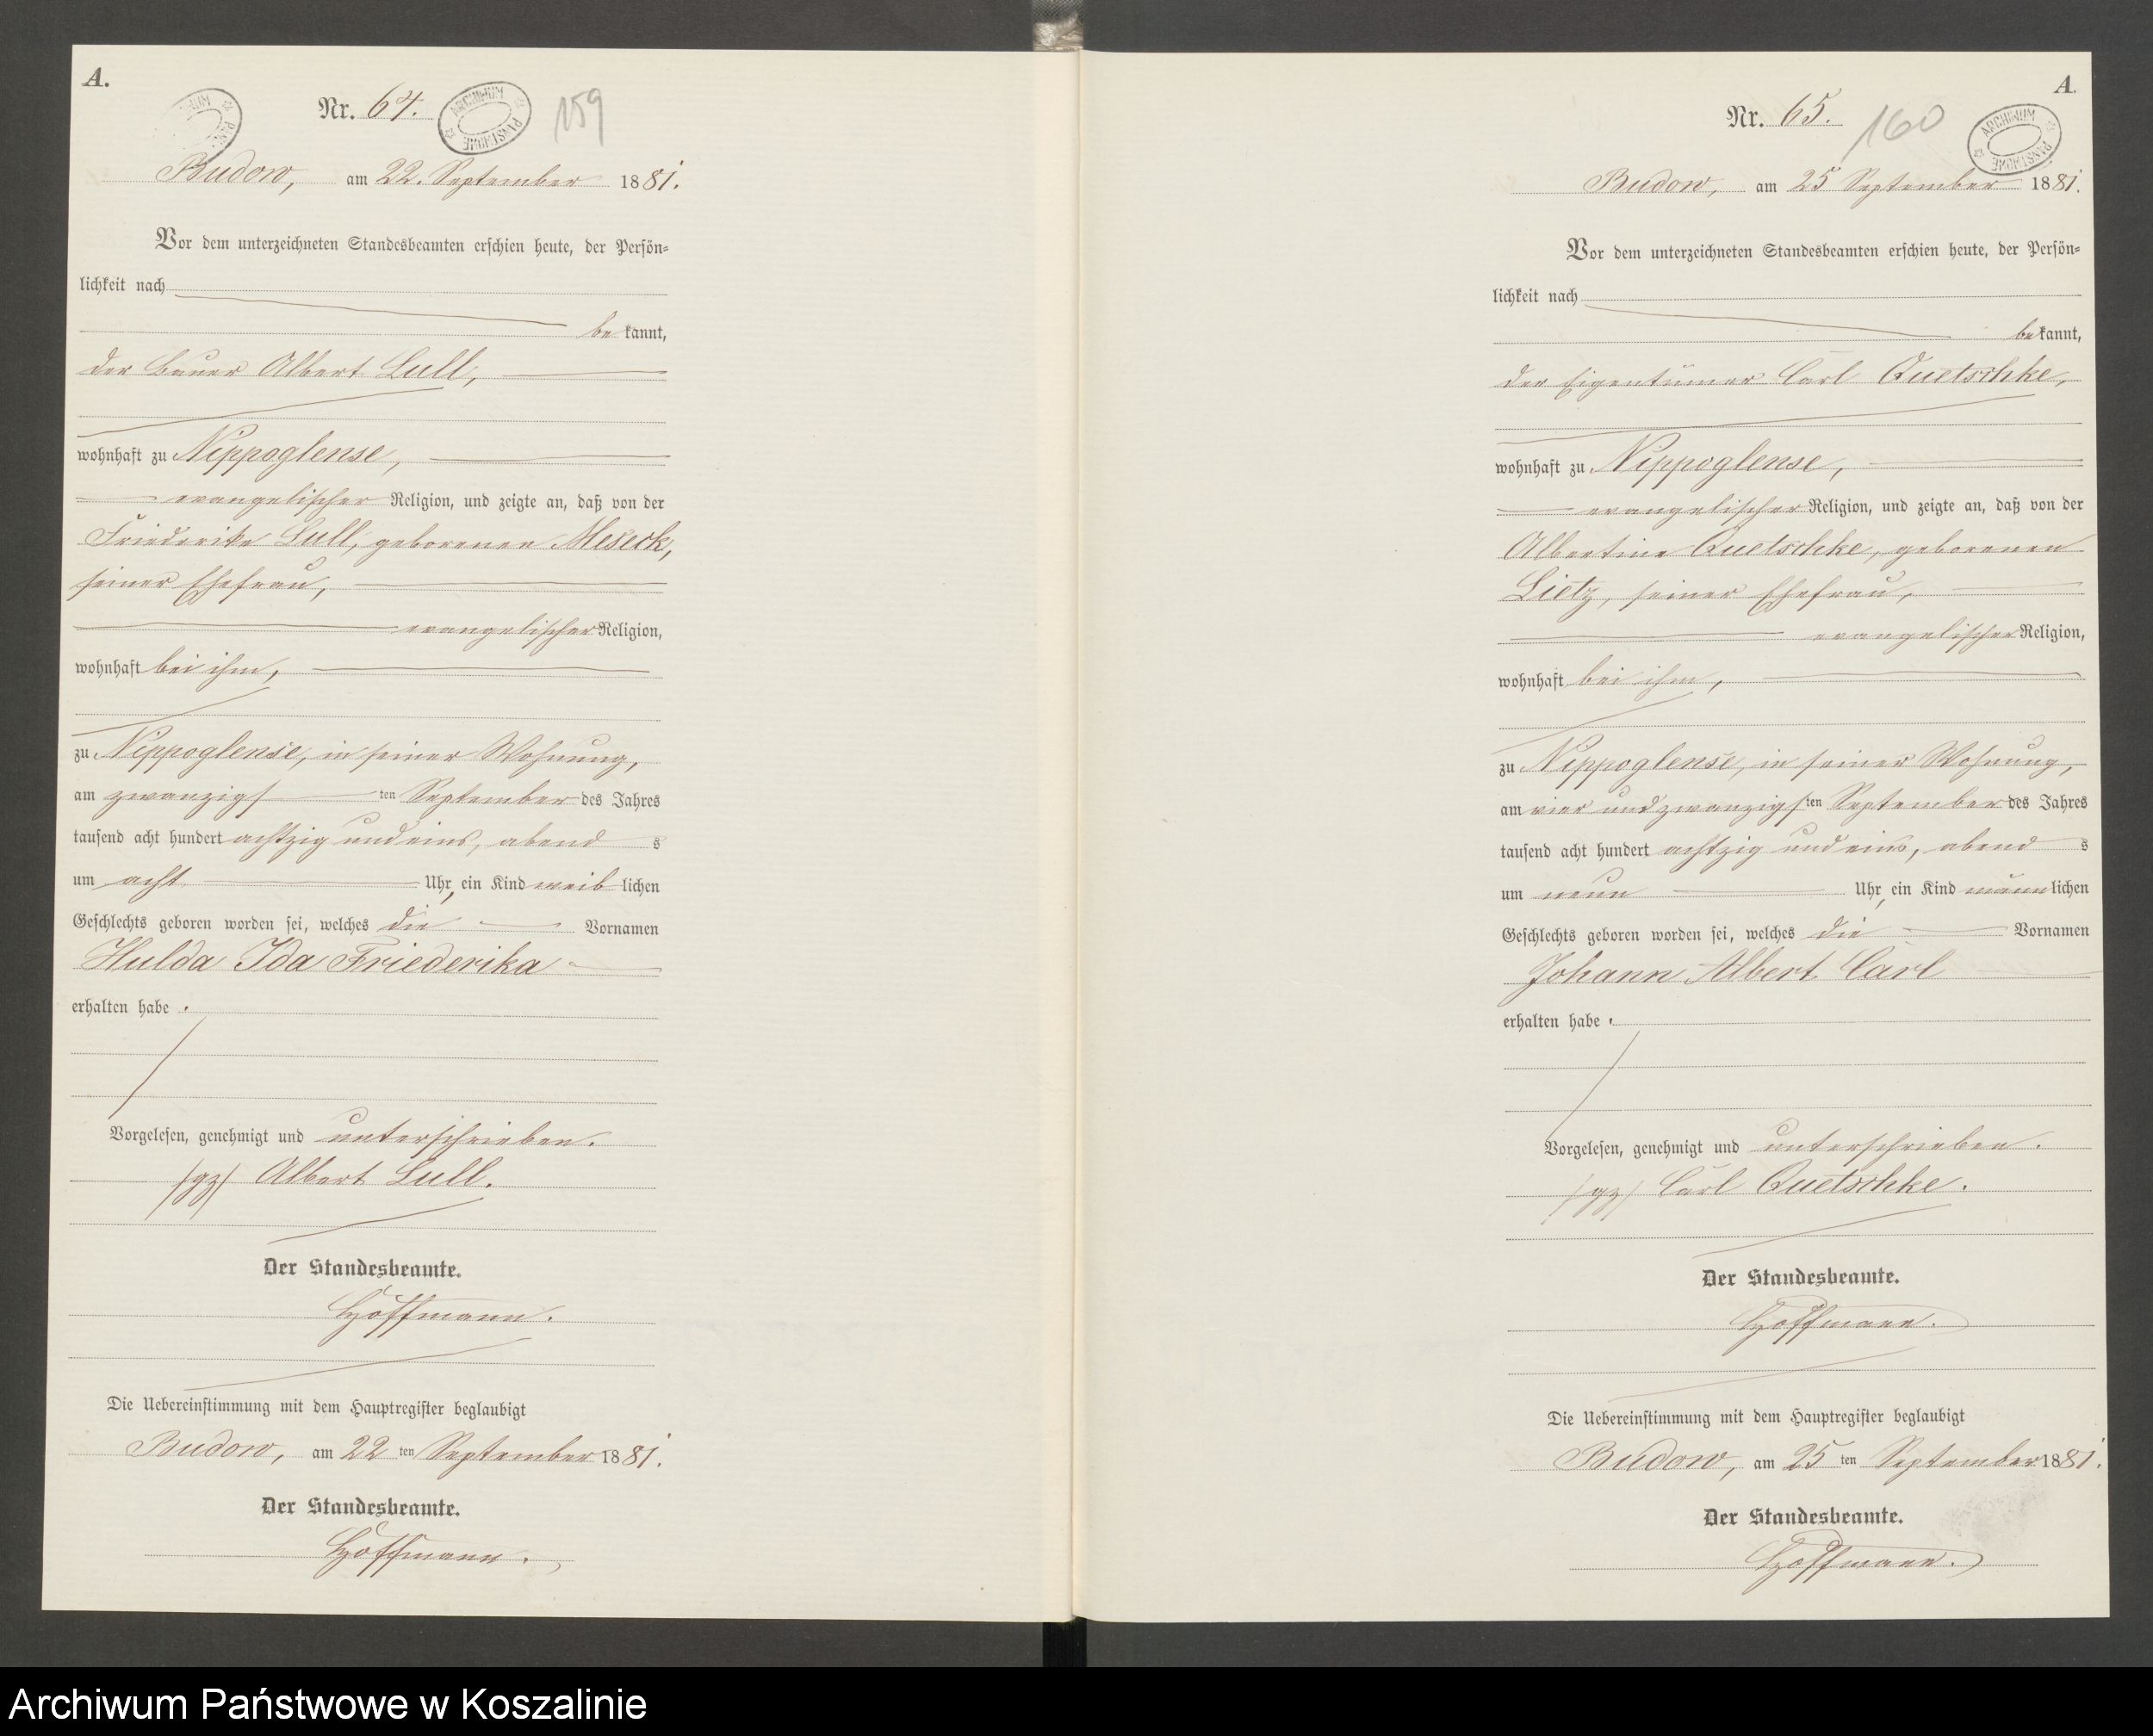 A.
Nr. 64.
ARCHIWUM PAŃSTWOWE
159
Budow, am 22. September 1881.
Vor dem unterzeichneten Standesbeamten erschien heute, der Persön=
lichkeit nach
bekannt,
der Bauer Albert Lull,
wohnhaft zu Nippoglense,
evangelischer Religion, und zeigte an, daß von der
Friederike Lull, geborenen Meseck,
seiner Ehefrau,
evangelischer Religion,
wohnhaft bei ihm,
zu Nippoglense, in seiner Wohnung,
am zwanzigsten September des Jahres
tausend acht hundert achtzig und eins, abends
um acht Uhr, ein Kind weiblichen
Geschlechts geboren worden sei, welches die Vornamen
Hulda Ida Friederika
erhalten habe.
Vorgelesen, genehmigt und unterschrieben.
/gz/ Albert Lull.
Der Standesbeamte.
Hoffmann.
Die Uebereinstimmung mit dem Hauptregister beglaubigt
Budow, am 22 ten September 1881.
Der Standesbeamte.
Hoffmann.
A.
Nr. 65.
160
ARCHIWUM PAŃSTWOWE
Budow, am 25 September 1881.
Vor dem unterzeichneten Standesbeamten erschien heute, der Persön=
lichkeit nach
bekannt,
der Eigentümer Carl Quetschke,
wohnhaft zu Nippoglense,
evangelischer Religion, und zeigte an, daß von der
Albertine Quetschke, geborenen
Lietz, seiner Ehefrau,
evangelischer Religion,
wohnhaft bei ihm,
zu Nippoglense, in seiner Wohnung,
am vier und zwanzigsten September des Jahres
tausend acht hundert achtzig und eins, abends
um neun Uhr, ein Kind männlichen
Geschlechts geboren worden sei, welches die Vornamen
Johann Albert Carl
erhalten habe.
Vorgelesen, genehmigt und unterschrieben.
/gz/ Carl Quetschke.
Der Standesbeamte.
Hoffmann.
Die Uebereinstimmung mit dem Hauptregister beglaubigt
Budow, am 25 ten September 1881.
Der Standesbeamte.
Hoffmann.
Archiwum Państwowe w Koszalinie